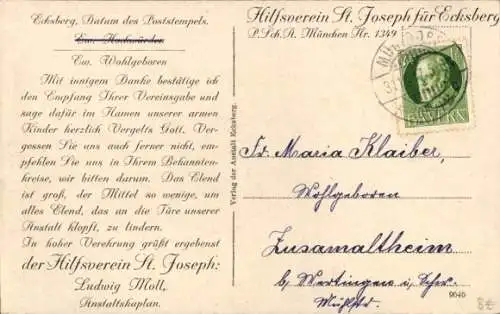 Ecksberg, Datum des Poststempels.
Ew. Hochwürden
Ew. Wohlgeboren
Mit innigem Danke bestätige ich
den Empfang Ihrer Vereinsgabe und
sage dafür im Namen unserer armen
Kinder herzlich Vergelts Gott. Ver-
gessen Sie uns auch ferner nicht, em-
pfehlen Sie uns in Ihrem Bekannten-
kreise, wir bitten darum. Das Elend
ist groß, der Mittel so wenige, um
alles Elend, das an die Türe unserer
Anstalt klopft, zu lindern.
In hoher Verehrung grüßt ergebenst
der Hilfsverein St. Joseph:
Ludwig Moll,
Anstaltskaplan.
Verlag der Anstalt Ecksberg.
Hilfsverein St. Joseph für Ecksberg
P. Sch. A. München Nr. 1349
BAYERN
Fr. Maria Klaiber,
Wohlgeboren
Zusamaltheim
b/ Wertingen i/ Schw.
9646
8€